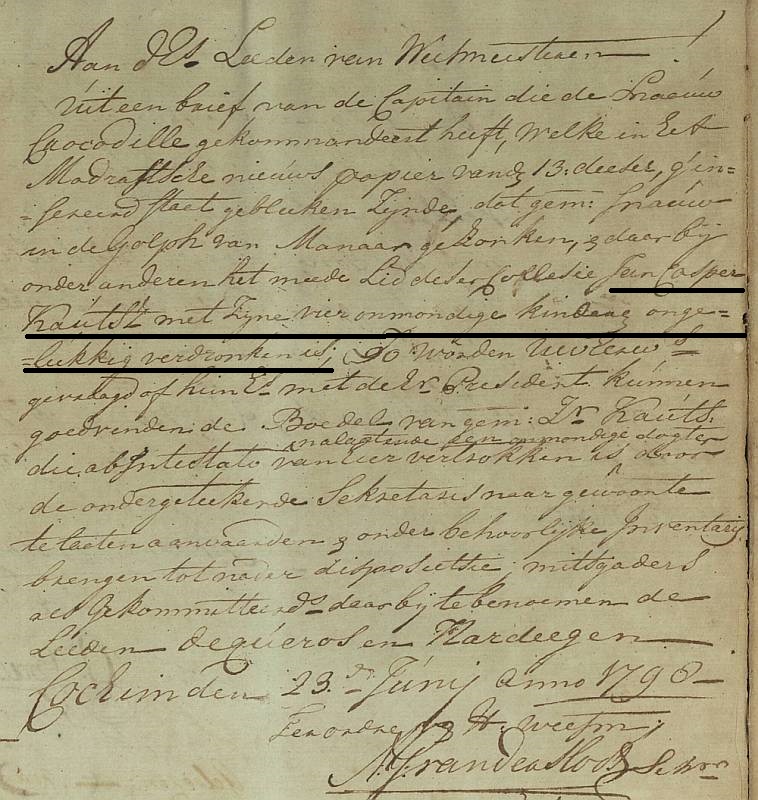 Aan d'Es. Leeden van Weesmeesteren
Uit een brief van de Capitain die de Snaeuw
Crocodille gekommandeert heeft, welke in het
Madrassche nieuws papier vand 13: deeser, g'in=
=sereerd staat gebleeken zynde, dat gem: snaeuw
in de Golph van Manaar gezonken, & daar bij
onder anderen het meede Lid deeser Collesie Jan Casper
Kauts met zyne vier onmondige kinderen onge=
=lukkig verdronken is; Zo worden UwEerw.s
gevraagd of hun Es. met de Er. President kunnen
goedvinden de Boedel van gem: Kauts.
nalaatende een onmondige dogter
die abintestato van hier vertrokken is door
de ondergeteekende Sekretaris naar gewoonte
te laaten aanvaarden & onder behoorlijke Inventarij
brengen tot nader dispositsie mitsgaders
als Gekommitteerds daarbij te benoemen de
Leeden dequeros en Hardeegen
Cochim den 23.n Junij Anno 1796
Ter ordre H. weesm;